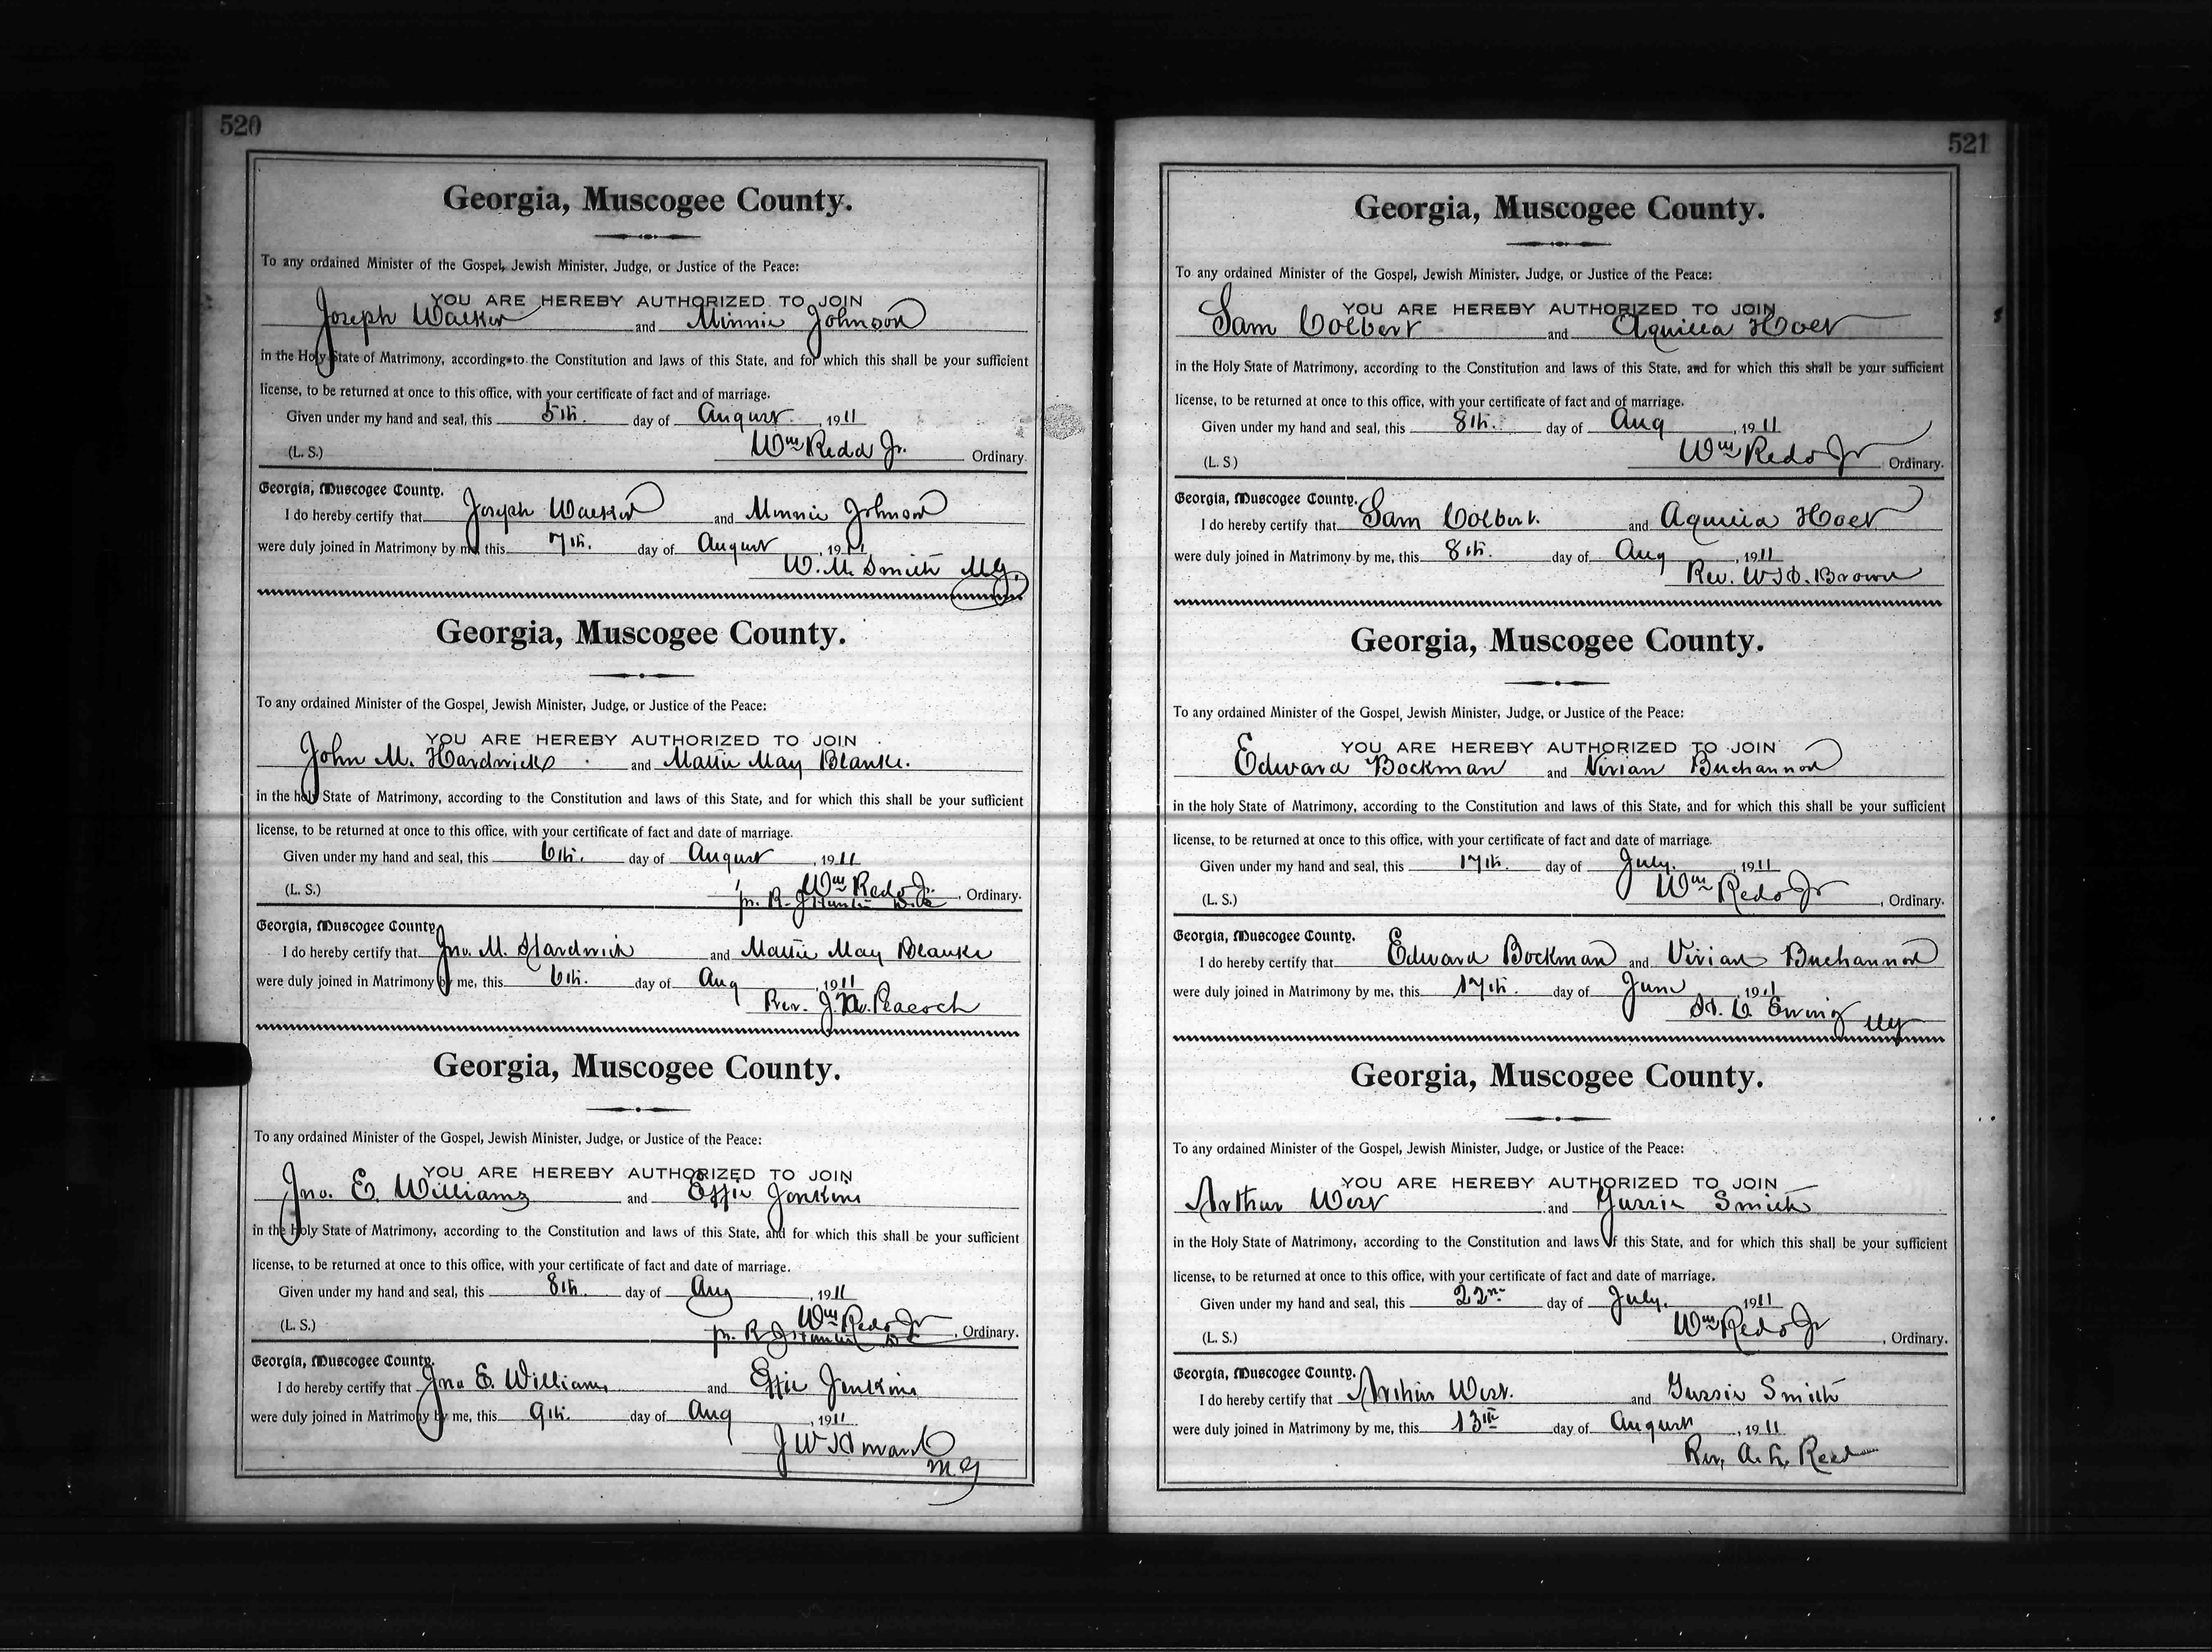 520
Georgia, Muscogee County.
To any ordained Minister of the Gospel, Jewish Minister, Judge, or Justice of the Peace:
YOU ARE HEREBY AUTHORIZED TO JOIN
Joseph Walker and Minnie Johnson
in the Holy State of Matrimony, according to the Constitution and laws of this State, and for which this shall be your sufficient
license, to be returned at once to this office, with your certificate of fact and of marriage.
Given under my hand and seal, this 5th. day of August, 1911
(L. S.) Wm Redd Jr. Ordinary.
Georgia, Muscogee County.
I do hereby certify that Joseph Walker and Minnie Johnson
were duly joined in Matrimony by me, this 7th. day of August, 1911
W. M. Smith M.G.
Georgia, Muscogee County.
To any ordained Minister of the Gospel, Jewish Minister, Judge, or Justice of the Peace:
YOU ARE HEREBY AUTHORIZED TO JOIN
John M. Hardwick and Mattie May Blanke.
in the holy State of Matrimony, according to the Constitution and laws of this State, and for which this shall be your sufficient
license, to be returned at once to this office, with your certificate of fact and date of marriage.
Given under my hand and seal, this 6th. day of August, 1911
Wm Redd Jr.
(L. S.) pr. R. J. Hunter D.C., Ordinary.
Georgia, Muscogee County
I do hereby certify that Jno. M. Hardwick and Mattie May Blanke
were duly joined in Matrimony by me, this 6th. day of Aug, 1911
Rev. J. W. Peacock
Georgia, Muscogee County.
To any ordained Minister of the Gospel, Jewish Minister, Judge, or Justice of the Peace:
YOU ARE HEREBY AUTHORIZED TO JOIN
Jno. E. Williams and Effie Jenkins
in the Holy State of Matrimony, according to the Constitution and laws of this State, and for which this shall be your sufficient
license, to be returned at once to this office, with your certificate of fact and date of marriage.
Given under my hand and seal, this 8th. day of Aug, 1911
Wm Redd Jr
(L. S.) pr. R J Hunter D C, Ordinary.
Georgia, Muscogee County.
I do hereby certify that Jno E. Williams and Effie Jenkins
were duly joined in Matrimony by me, this 9th. day of Aug, 1911
J W
M G
521
Georgia, Muscogee County.
To any ordained Minister of the Gospel, Jewish Minister, Judge, or Justice of the Peace:
YOU ARE HEREBY AUTHORIZED TO JOIN
Sam Colbert and Aquilla Holt
in the Holy State of Matrimony, according to the Constitution and laws of this State, and for which this shall be your sufficient
license, to be returned at once to this office, with your certificate of fact and of marriage.
Given under my hand and seal, this 8th. day of Aug, 1911
(L. S) Wm Redd Jr Ordinary.
Georgia, Muscogee County.
I do hereby certify that Sam Colbert. and Aquilla Holt
were duly joined in Matrimony by me, this 8th. day of Aug, 1911
Rev. Brown
Georgia, Muscogee County.
To any ordained Minister of the Gospel, Jewish Minister, Judge, or Justice of the Peace:
YOU ARE HEREBY AUTHORIZED TO JOIN
Edward Bockman and Vivian Buchannon
in the holy State of Matrimony, according to the Constitution and laws of this State, and for which this shall be your sufficient
license, to be returned at once to this office, with your certificate of fact and date of marriage.
Given under my hand and seal, this 17th. day of July. 1911
(L. S.) Wm Redd Jr, Ordinary.
Georgia, Muscogee County.
I do hereby certify that Edward Bockman and Vivian Buchannon
were duly joined in Matrimony by me, this 17th. day of June, 1911
Ewing MG
Georgia, Muscogee County.
To any ordained Minister of the Gospel, Jewish Minister, Judge, or Justice of the Peace:
YOU ARE HEREBY AUTHORIZED TO JOIN
Arthur West and Gussie Smith
in the Holy State of Matrimony, according to the Constitution and laws of this State, and for which this shall be your sufficient
license, to be returned at once to this office, with your certificate of fact and date of marriage.
Given under my hand and seal, this 22nd day of July, 1911
(L. S.) Wm Redd Jr, Ordinary.
Georgia, Muscogee County.
I do hereby certify that Arthur West. and Gussie Smith
were duly joined in Matrimony by me, this 13th day of August, 1911
Rev. A. L. Reed